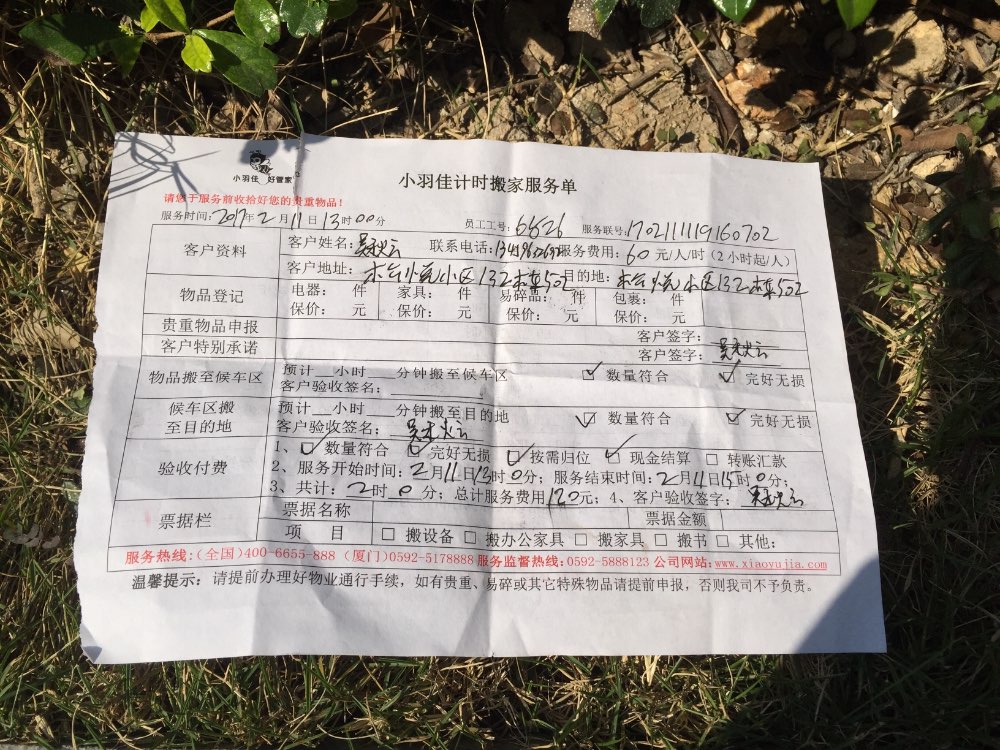 小羽佳 好管家
小羽佳计时搬家服务单
请您于服务前收拾好您的贵重物品!
服务时间:2017年2月11日13时00分 员工工号:66526 服务联号:170211119160702
客户资料 客户姓名: 联系电话: 服务费用:60元/人/时(2小时起/人)
客户地址: 小区132栋502目的地: 小区132栋502
物品登记 电器: 件 家具: 件 易碎品: 件 包裹: 件
保价: 元 保价: 元 保价: 元 保价: 元
贵重物品申报 客户签字:
客户特别承诺 客户签字:
物品搬至候车区 预计__小时___分钟搬至候车区 ☑ 数量符合 ☑ 完好无损
客户验收签名:
候车区搬至目的地 预计__小时___分钟搬至目的地 ☑ 数量符合 ☑ 完好无损
客户验收签名:
验收付费 1、☑ 数量符合 ☑ 完好无损 ☑ 按需归位 ☑ 现金结算 □ 转账汇款
2、服务开始时间:2月11日13时0分;服务结束时间:2月11日15时0分;
3、共计:2时0分;总计服务费用120元;4、客户验收签字:
票据栏 票据名称 票据金额
项 目 □ 搬设备 □ 搬办公家具 □ 搬家具 □ 搬书 □ 其他:
服务热线:(全国)400-6655-888 (厦门)0592-5178888 服务监督热线:0592-5888123 公司网站:www.xiaoyujia.com
温馨提示:请提前办理好物业通行手续,如有贵重、易碎或其它特殊物品请提前申报,否则我司不予负责。